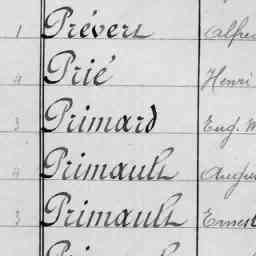 1 Prévert Alfred
4 Prié Henri
3 Primard Eug. M
4 Primault Augu
3 Primault Ernest